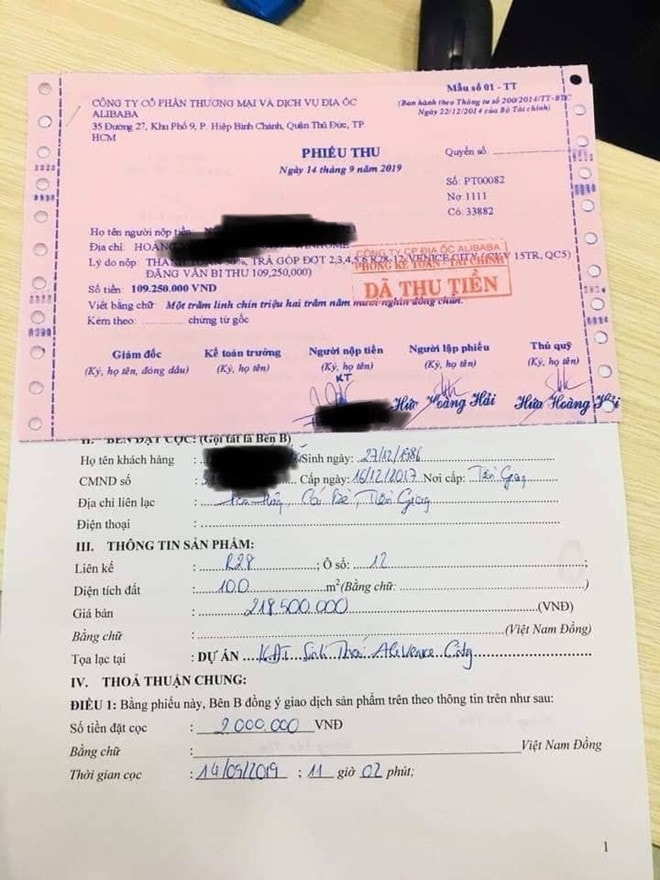 CÔNG TY CỔ PHẦN THƯƠNG MẠI VÀ DỊCH VỤ ĐỊA ỐC
ALIBABA
35 Đường 27, Khu Phố 9, P. Hiệp Bình Chánh, Quận Thủ Đức, TP.
HCM
Mẫu số 01 - TT
(Ban hành theo Thông tư số 200/2014/TT-BTC
Ngày 22/12/2014 của Bộ Tài chính)
PHIẾU THU
Ngày 14 tháng 9 năm 2019
Quyển số:
Số: PT00082
Nợ: 1111
Có: 33882
Họ tên người nộp tiền
Địa chỉ: HOÀNG
Lý do nộp: THANH TOÁN 50%, TRẢ GÓP ĐỢT 2,3,4,5,6 R28, 12 VENICE CITY, 15TR, QC5)
ĐẶNG VĂN BI THU 109,250,000)
Số tiền: 109.250.000 VND
Viết bằng chữ: Một trăm linh chín triệu hai trăm năm mươi nghìn đồng chẵn.
Kèm theo: .............. chứng từ gốc
CÔNG TY CP ĐỊA ỐC ALIBABA
PHÒNG KẾ TOÁN - TÀI CHÍNH
ĐÃ THU TIỀN
Giám đốc Kế toán trưởng Người nộp tiền Người lập phiếu Thủ quỹ
(Ký, họ tên, đóng dấu) (Ký, họ tên) (Ký, họ tên) (Ký, họ tên) (Ký, họ tên)
KT
Hứa Hoàng Hải Hứa Hoàng Hải
II. BÊN ĐẶT CỌC: (Gọi tắt là Bên B)
Họ tên khách hàng : Sinh ngày: 27/12/1986
CMND số : Cấp ngày: 16/12/2017 Nơi cấp: Tiền Giang
Địa chỉ liên lạc : Cái Bè, Tiền Giang
Điện thoại :
III. THÔNG TIN SẢN PHẨM:
Liên kế : R28 ; Ô số: 12 ;
Diện tích đất : 100 m²(Bằng chữ: )
Giá bán : 218.500.000 (VNĐ)
Bằng chữ : (Việt Nam Đồng)
Tọa lạc tại : DỰ ÁN KĐT Sinh Thái Ali Venice City
IV. THOẢ THUẬN CHUNG:
ĐIỀU 1: Bằng phiếu này, Bên B đồng ý giao dịch sản phẩm trên theo thông tin trên như sau:
Số tiền đặt cọc : 2.000.000 VNĐ
Bằng chữ : Việt Nam Đồng
Thời gian cọc : 14/09/2019 ; 11 giờ 02 phút;
1